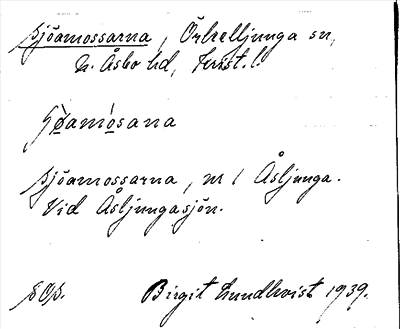 Sjöamossarna, Örkelljunga sn,
N. Åsbo hd, Krist. l.
sjöamósana
Sjöamossarna, m i Åsljunga.
Vid Åsljungasjön.
Birgit Lundkvist 1939.